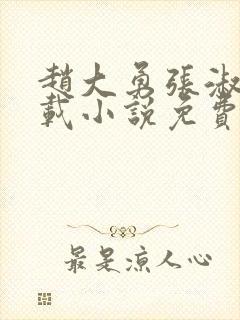 趙大勇張淑
載小說免費
最是涼人心